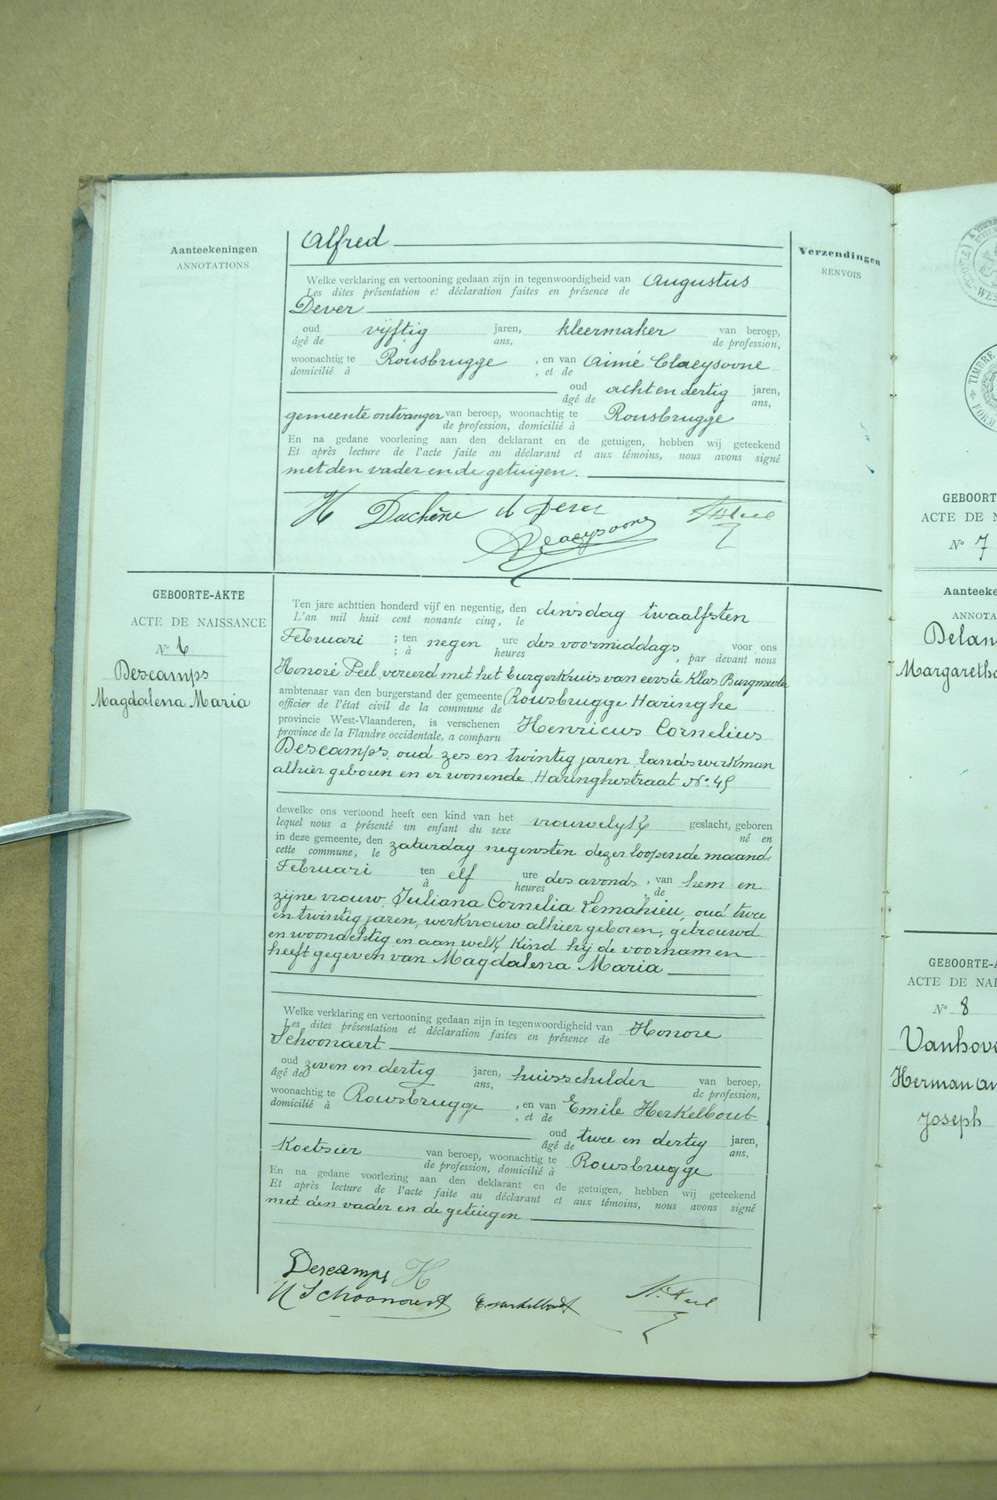 Aanteekeningen
ANNOTATIONS
Alfred
Verzendingen
RENVOIS
Welke verklaring en vertooning gedaan zijn in tegenwoordigheid van Augustus
Les dites présentation et déclaration faites en présence de
Dever
oud vijftig jaren, kleermaker van beroep,
âgé de ans, de profession,
woonachtig te Rousbrugge , en van Aimé Claeysoone
domicilié à , et de
oud acht en dertig jaren,
âgé de ans,
gemeente ontvanger van beroep, woonachtig te Rousbrugge
de profession, domicilié à
En na gedane voorlezing aan den deklarant en de getuigen, hebben wij geteekend
Et après lecture de l'acte faite au déclarant et aux témoins, nous avons signé
met den vader en de getuigen.
H Duchêne Dever
Claeysoone
GEBOORTE-AKTE
ACTE DE NAISSANCE
No 6
Descamps
Magdalena Maria
Ten jare achttien honderd vijf en negentig, den dinsdag twaalfsten
L'an mil huit cent nonante cinq, le
Februari ; ten negen ure des voormiddags voor ons
; à heures , par devant nous
Honoré Peel, vereerd met het Burgerkruis van eerste klas Burgmeester
ambtenaar van den burgerstand der gemeente Rousbrugge Haringhe
officier de l'état civil de la commune de
provincie West-Vlaanderen, is verschenen Henricus Cornelius
province de la Flandre occidentale, a comparu
Descamps, oud zes en twintig jaren, landswerkman
alhier geboren en er wonende Haringhestraat No 45
dewelke ons vertoond heeft een kind van het vrouwelijk geslacht, geboren
lequel nous a présenté un enfant du sexe né en
in deze gemeente, den zaturdag negensten dezer loopende maand
cette commune, le
Februari ten elf ure des avonds , van hem en
à heures , de
zijne vrouw Juliana Cornelia Lemahieu, oud twee
en twintig jaren, werkvrouw alhier geboren, getrouwd
en woonachtig en aan welk kind hij de voornamen
heeft gegeven van Magdalena Maria
Welke verklaring en vertooning gedaan zijn in tegenwoordigheid van Honore
Les dites présentation et déclaration faites en présence de
Schoonaert
oud zeven en dertig jaren, huisschilder van beroep,
âgé de ans, de profession,
woonachtig te Rousbrugge , en van Emile Herkelbout
domicilié à , et de
oud twee en dertig jaren,
âgé de ans,
Koetsier van beroep, woonachtig te Rousbrugge
de profession, domicilié à
En na gedane voorlezing aan den deklarant en de getuigen, hebben wij geteekend
Et après lecture de l'acte faite au déclarant et aux témoins, nous avons signé
met den vader en de getuigen
Descamps H
H Schoonaert
GEBOORT
ACTE DE N
No 7
Aanteeke
ANNOTA
Delan
Margaretha
GEBOORTE-A
ACTE DE NAI
No 8
Vanhov
Herman
Joseph